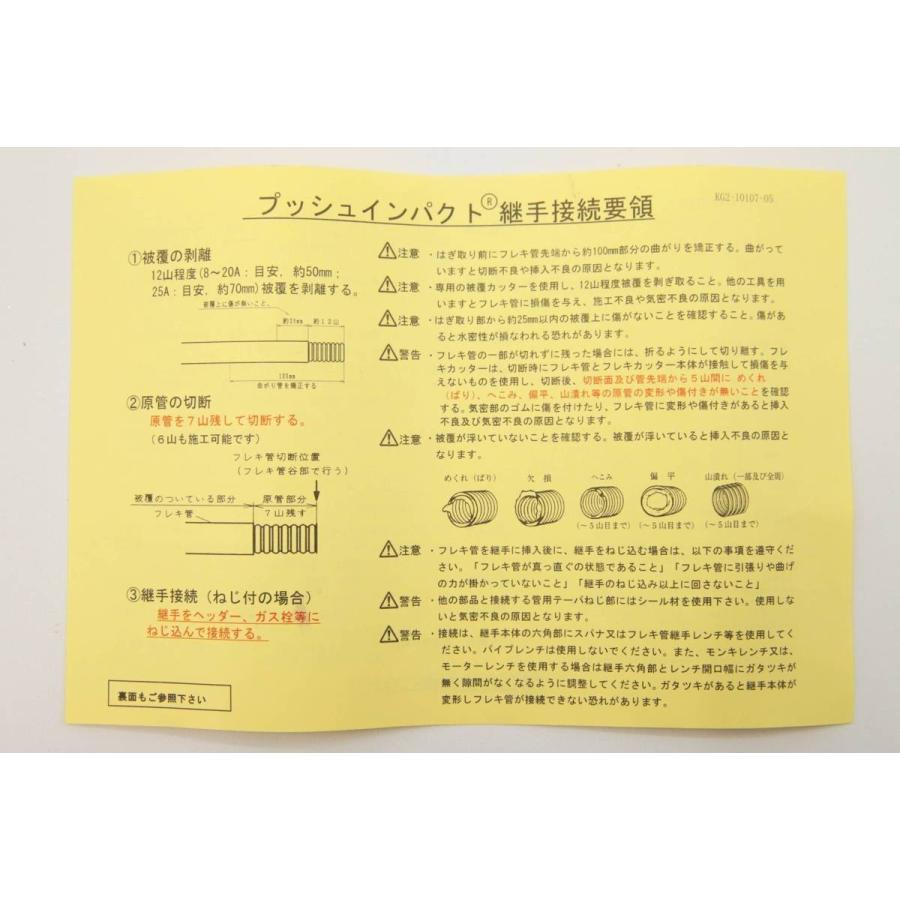 プッシュインパクト®継手接続要領
KG2-10107-05
①被覆の剥離
12山程度(8～20A：目安，約50mm；
25A：目安，約70mm)被覆を剥離する。
被覆上に傷が無いこと。
約25mm 約12山
100mm
曲がり管を矯正する
②原管の切断
原管を7山残して切断する。
(6山も施工可能です)
フレキ管切断位置
(フレキ管谷部で行う)
被覆のついている部分 原管部分
フレキ管 7山残す
③継手接続（ねじ付の場合）
継手をヘッダー、ガス栓等に
ねじ込んで接続する。
裏面もご参照下さい
注意 ・はぎ取り前にフレキ管先端から約100mm部分の曲がりを矯正する。曲がって
いますと切断不良や挿入不良の原因となります。
注意 ・専用の被覆カッターを使用し、12山程度被覆を剥ぎ取ること。他の工具を用
いますとフレキ管に損傷を与え、施工不良や気密不良の原因となります。
注意 ・はぎ取り部から約25mm以内の被覆上に傷がないことを確認すること。傷があ
ると水密性が損なわれる恐れがあります。
警告 ・フレキ管の一部が切れずに残った場合には、折るようにして切り離す。フレ
キカッターは、切断時にフレキ管とフレキカッター本体が接触して損傷を与
えないものを使用し、切断後、切断面及び管先端から５山間に めくれ
(ばり)、へこみ、偏平、山潰れ等の原管の変形や傷付きが無いことを確認
する。気密部のゴムに傷を付けたり、フレキ管に変形や傷付きがあると挿入
不良及び気密不良の原因となります。
注意 ・被覆が浮いていないことを確認する。被覆が浮いていると挿入不良の原因と
なります。
めくれ（ばり） 欠損 へこみ 偏平 山潰れ（一部及び全周）
(～５山目まで) (～５山目まで) (～５山目まで)
注意 ・フレキ管を継手に挿入後に、継手をねじ込む場合は、以下の事項を遵守くだ
さい。「フレキ管が真っ直ぐの状態であること」「フレキ管に引張りや曲げ
の力が掛かっていないこと」「継手のねじ込み以上に回さないこと」
警告 ・他の部品と接続する管用テーパねじ部にはシール材を使用下さい。使用しな
いと気密不良の原因となります。
警告 ・接続は、継手本体の六角部にスパナ又はフレキ管継手レンチ等を使用してく
ださい。パイプレンチは使用しないでください。また、モンキレンチ又は、
モーターレンチを使用する場合は継手六角部とレンチ開口幅にガタツキが
無く隙間がなくなるように調整してください。ガタツキがあると継手本体が
変形しフレキ管が接続できない恐れがあります。